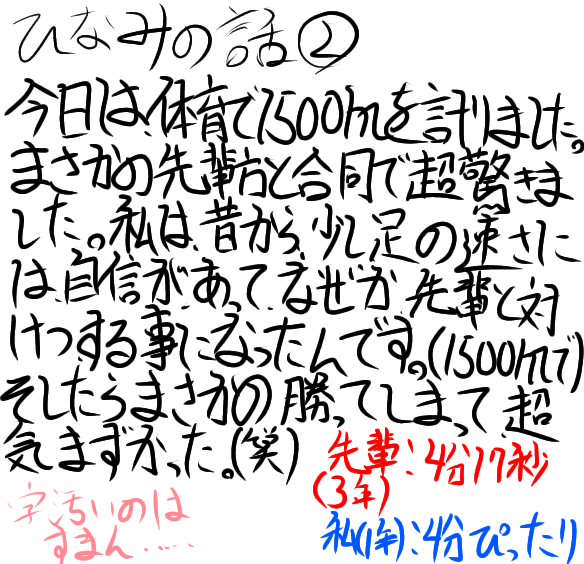 ひなみの話②
今日は、体育で1500mを計りました。
まさかの先輩方と合同で超驚きま
した。私は、昔から、少し足の速さに
は、自信があって、なぜか、先輩と対
けつする事になったんです。(1500mで)
そしたらまさかの勝ってしまって、超
気まずかった。(笑)
先輩:4分17秒
(3年)
私(1年):4分ぴったり
字汚いのは
すまん……